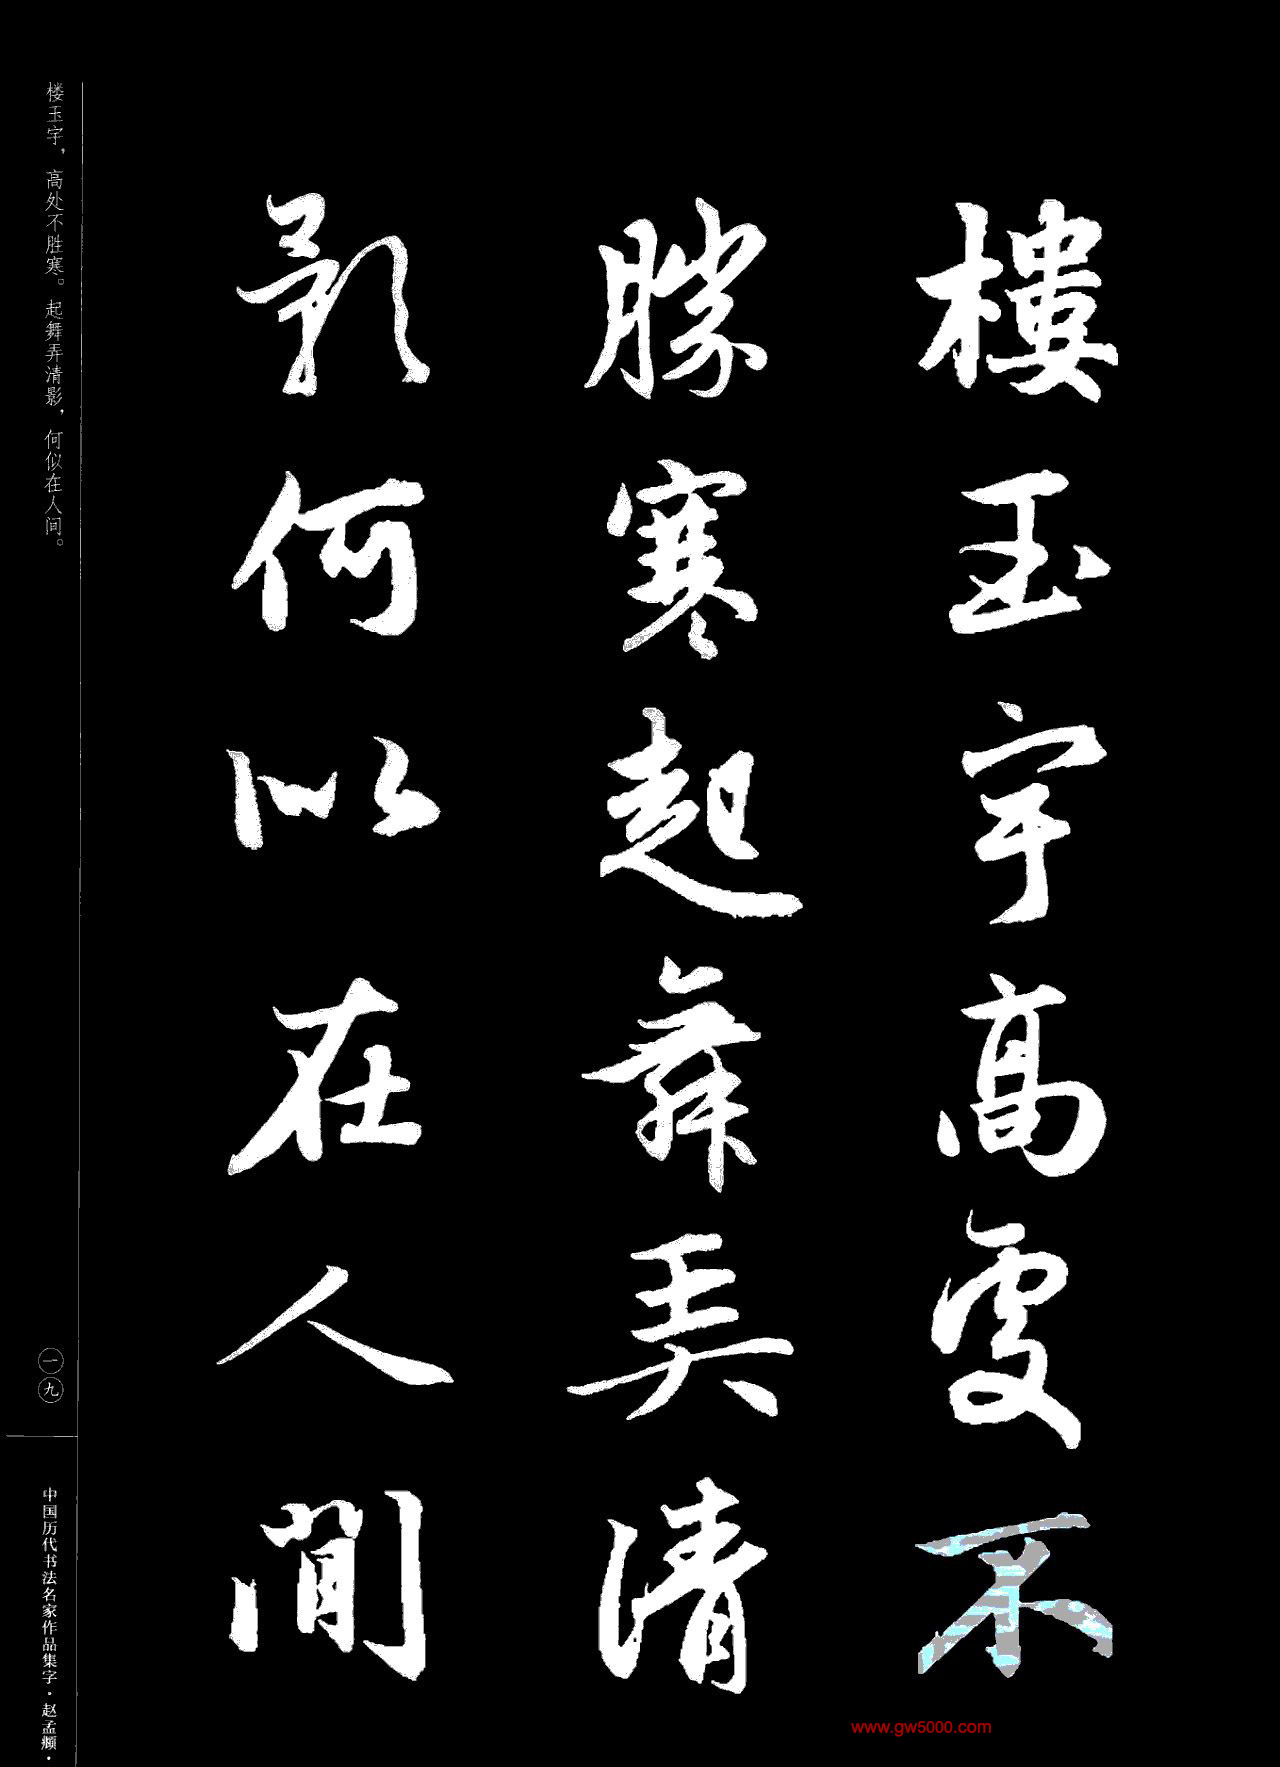 樓玉宇高處不
勝寒起舞弄清
影何似在人間
楼玉宇，高处不胜寒。起舞弄清影，何似在人间。
一九
中国历代书法名家作品集字·赵孟頫·
www.gw5000.com